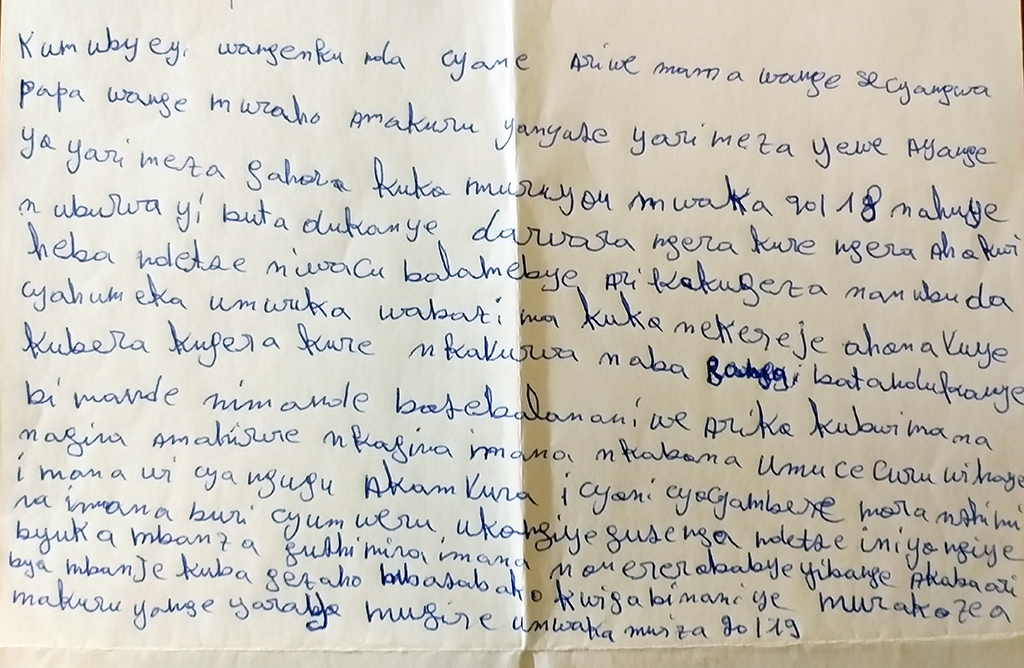 Kumubyeyi wangenku nda cyane Ariwe mama wange se cyangwa
papa wange muraho Amakuru yanyuse yari meza yewe Ayange
yo yari meza gahora kuko muruyou mwaka 2018 nahuye
n uburwayi buta dukanye darwara ngera kure ngera Ahakwi
heba ndetse niwacu balamebye Ari kakugeza nanubu da
cyahumeka umwuka wabazi ma kuko nekereje ahonakuye
kubera kugera kure nkakurwa naba batandukanye
bi mande nimande bosebalananiwe Arika kubwimana
nagira Amahirwe nkagira imana nkabona Umucecuru wihaye
imana wi cyangugu AkamKura i cyoni cyocyambere mora nshimi
ra imana buri cyumweru ukongiye gusenga ndetse iniyongiye
byuka mbanza gushimira imana nonererababyeyibange Akabaari
bya mbanje kuba gezaho bibasabako kwigabinaniye murakozea
makuru yange yarabye mugire umwaka mwiza 2019